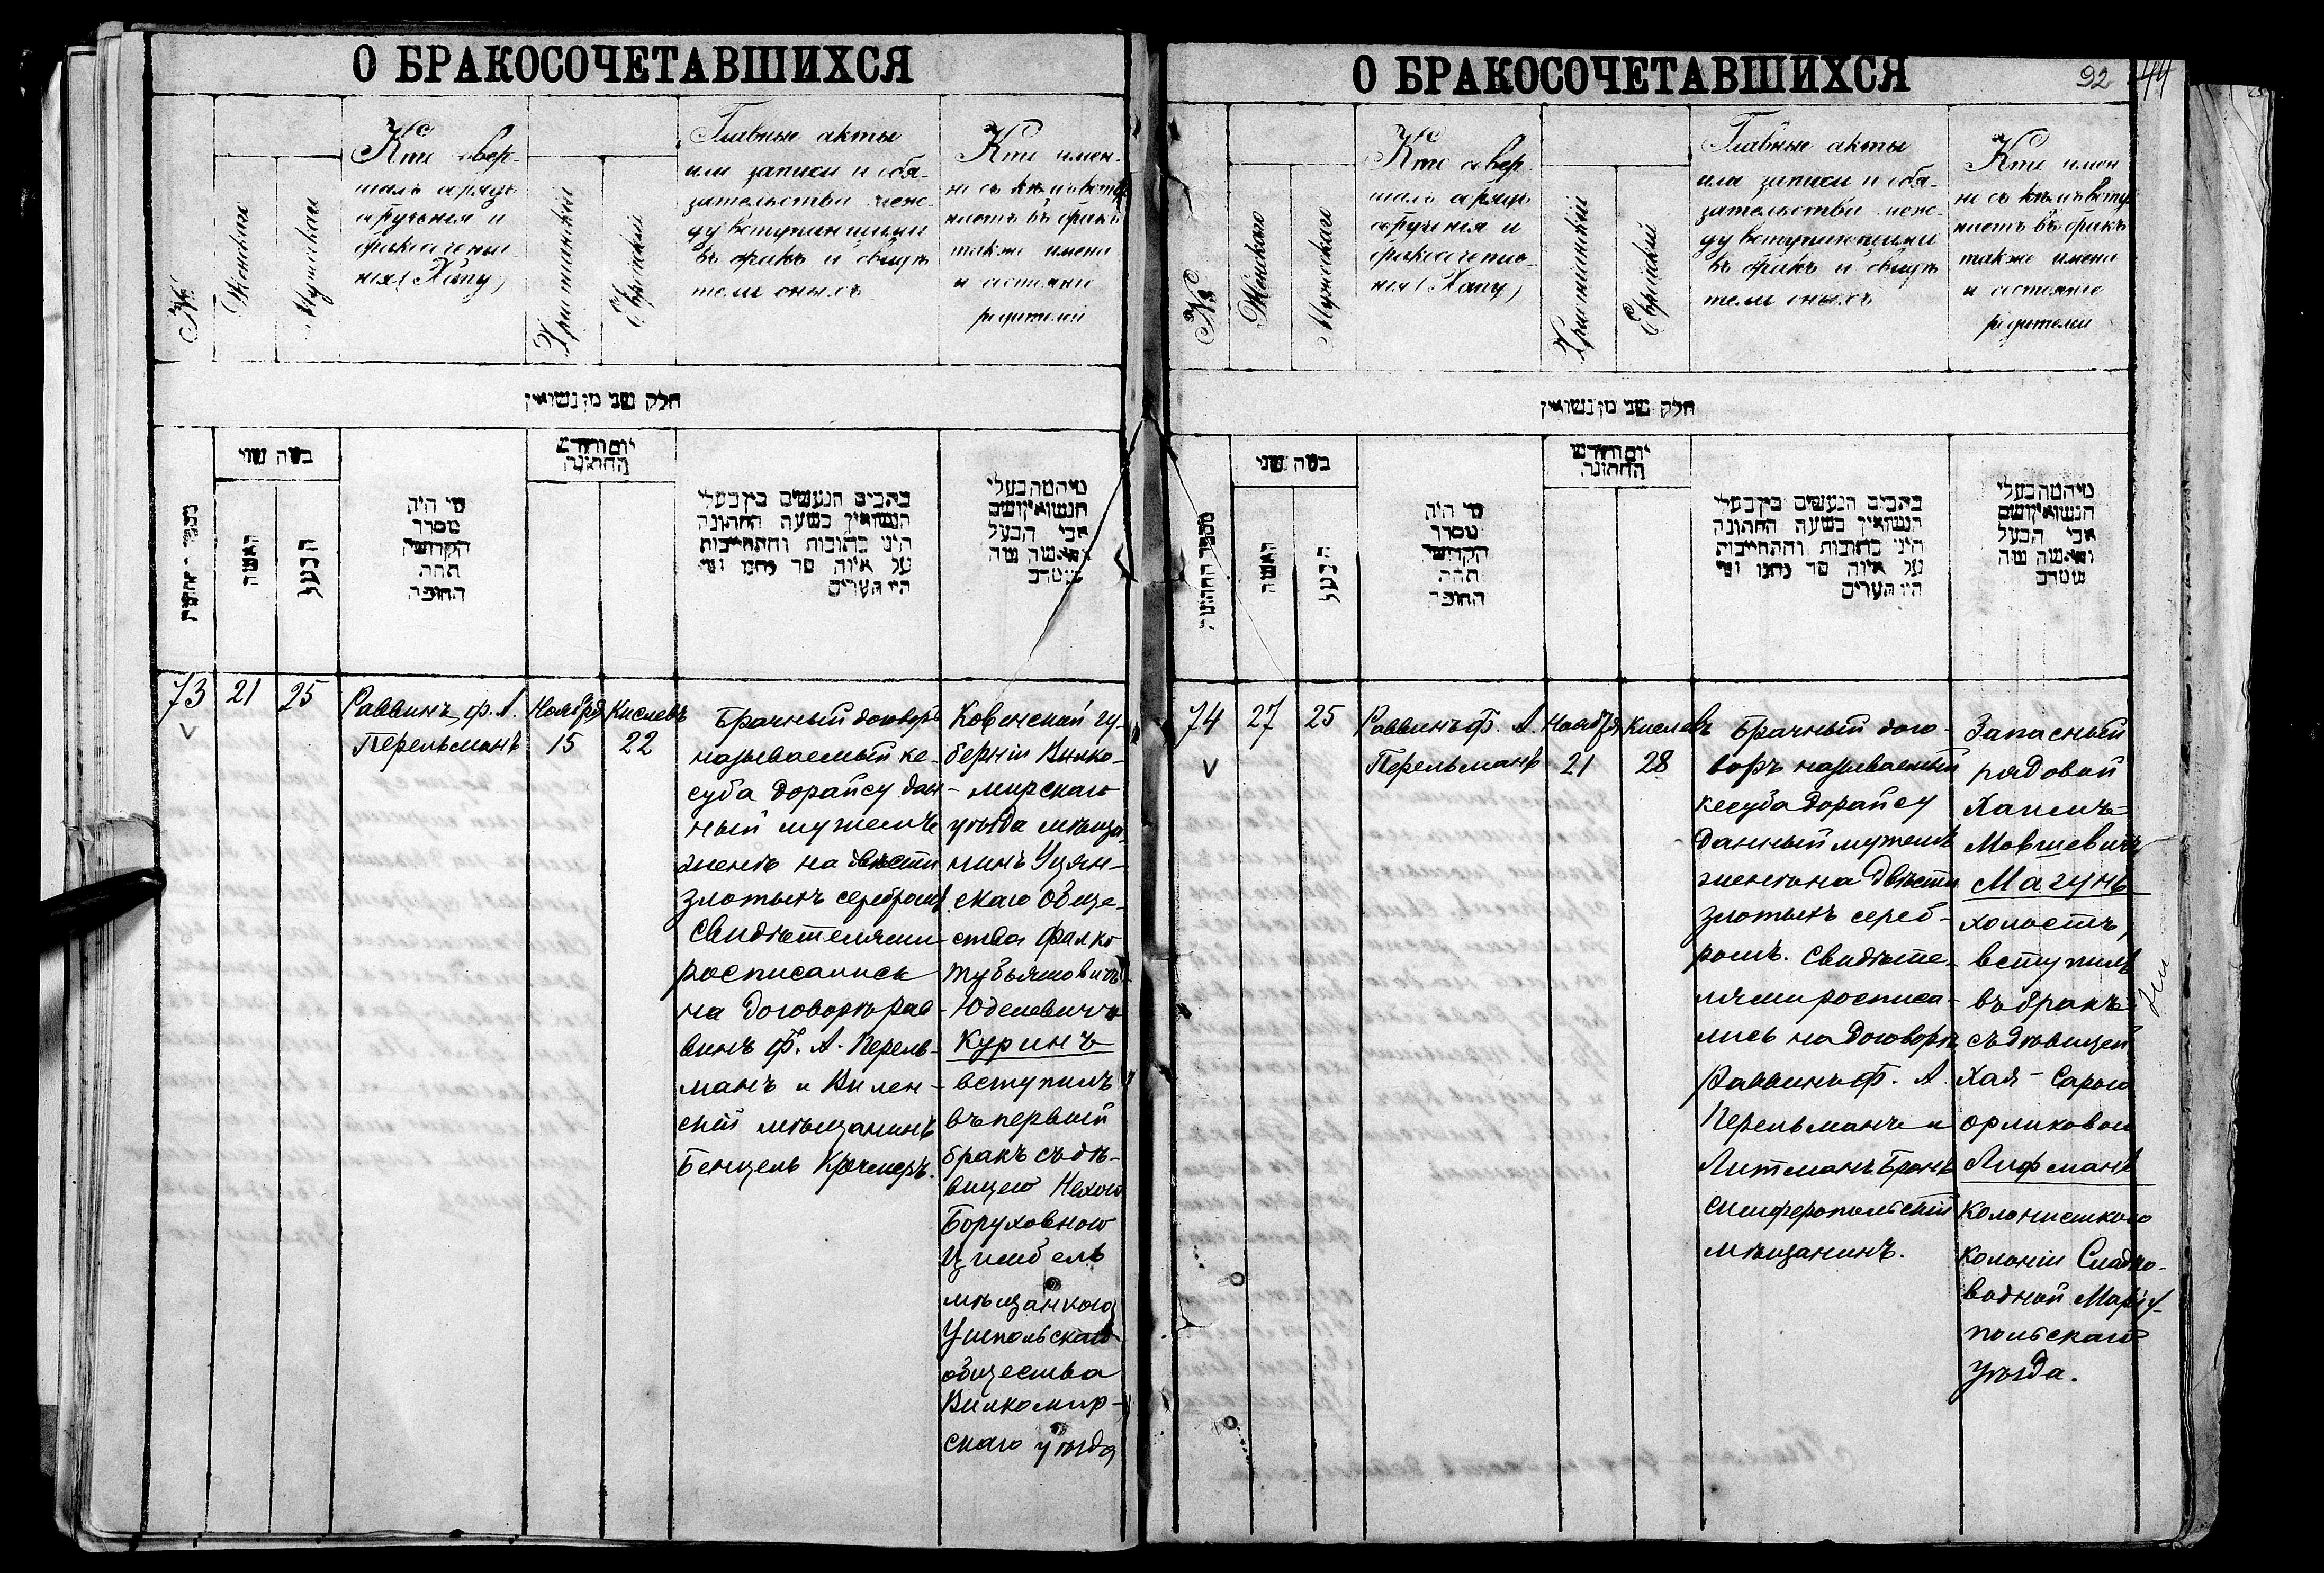 О БРАКОСОЧЕТАВШИХСЯ
№
Женскаго
Мужескаго
Кто совер-
шалъ обрядъ
обрученія и
бракосочета
нія (Хупу)
Христіанскій
Еврейскій
Главные акты
или записи и обя-
зательства меж-
ду вступающими
въ бракъ и свидѣ
тели оныхъ
Кто имен-
но съ кѣмъ всту
паетъ въ бракъ
также имена
и состояніе
родителей
חלק שני מן נשואין
כמה שני
האשה
הבעל
מי היה
מסדר
הקדושין
תחת
החופה
יום וחדש
החתונה
כתבים הנעשים בין בעלי
הנשואין בשעת החתונה
היינו כתובות והתחייבות
על איזה סך נתנו ומי
היו העדים
73 21 25
Раввинъ Ф. А.
Перельманъ
Ноября
15
Кислевъ
22
Брачный договоръ
называемый ке-
суба дорайсу дан-
ный мужемъ
женѣ на двѣсти
злотыхъ серебромъ
Свидѣтелями
росписались
на договорѣ рав-
винъ Ф. А. Перель-
манъ и Вилен-
скій мѣщанинъ
Бенцель Кремеръ.
Ковенской гу-
берніи Вилко-
мирскаго
уѣзда мѣща-
нинъ Уцян-
скаго обще-
ства Фалко
Тубьяшовичъ-
Юделевичъ
Куринъ
вступилъ
въ первый
бракъ съ дѣ-
вицею Нехою
Боруховною
Цимбель
мѣщанкою
Ушпольскаго
общества
Вилкомир-
скаго уѣзда
О БРАКОСОЧЕТАВШИХСЯ
92
44
№
Женскаго
Мужескаго
Кто совер-
шалъ обрядъ
обрученія и
бракосочета-
нія (Хупу)
Христіанскій
Еврейскій
Главные акты
или записи и обя-
зательства меж-
ду вступающими
въ бракъ и свидѣ
тели оныхъ
Кто имен
но съ кѣмъ всту
паетъ въ бракъ
также имена
и состояніе
родителей
חלק שני מן נשואין
מספר החתונות
כמה שני
האשה
הבעל
מי היה
מסדר
הקדושין
תחת
החופה
יום וחדש
החתונה
כתבים הנעשים בין בעלי
הנשואין בשעת החתונה
היינו כתובות והתחייבות
על איזה סך נתנו ומי
היו העדים
74 27 25
Раввинъ Ф. А.
Перельманъ
Ноября
21
Кислевъ
28
Брачный дого-
воръ называемый
кесуба дорайсу
данный мужемъ
женѣ на двѣсти
злотыхъ сереб-
ромъ. Свидѣте-
лями росписа-
лись на договорѣ
Раввинъ Ф. А.
Перельманъ и
Литманъ Бронъ
симферопольскій
мѣщанинъ.
Запасный
рядовой
Хаимъ-
Мовшевичъ
Магунъ
холостъ,
вступилъ
въ бракъ
съ дѣвицей
Хая-Сарою
Орликовой
Лифманъ
колонисткою
колоніи Сладко-
водной Маріу-
польскаго
уѣзда.